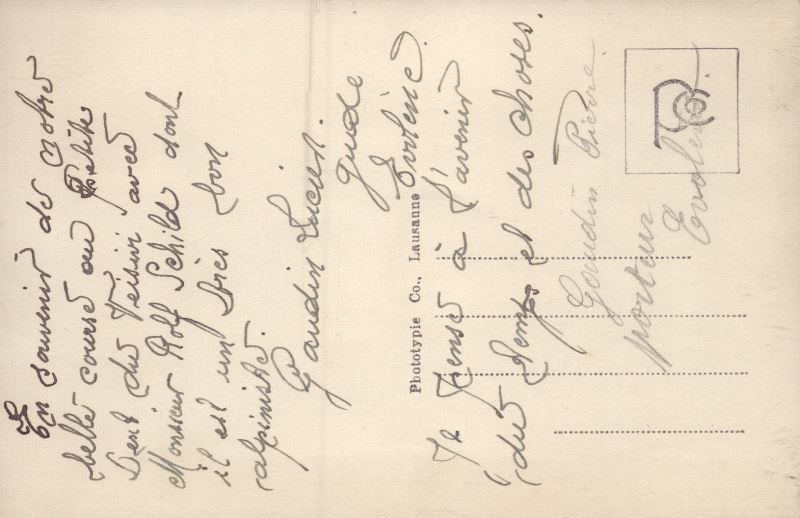 En souvenir de notre
belle course au Petite
Dent du Veisivi avec
Monsieur Rolf Schild dont
il est un très bon
alpiniste.
Gaudin Lucien.
guide
Evolène.
Phototypie Co., Lausanne
Je pense à l'avenir
du temps et des choses.
Gaudin Pierre.
porteur
Evolène.